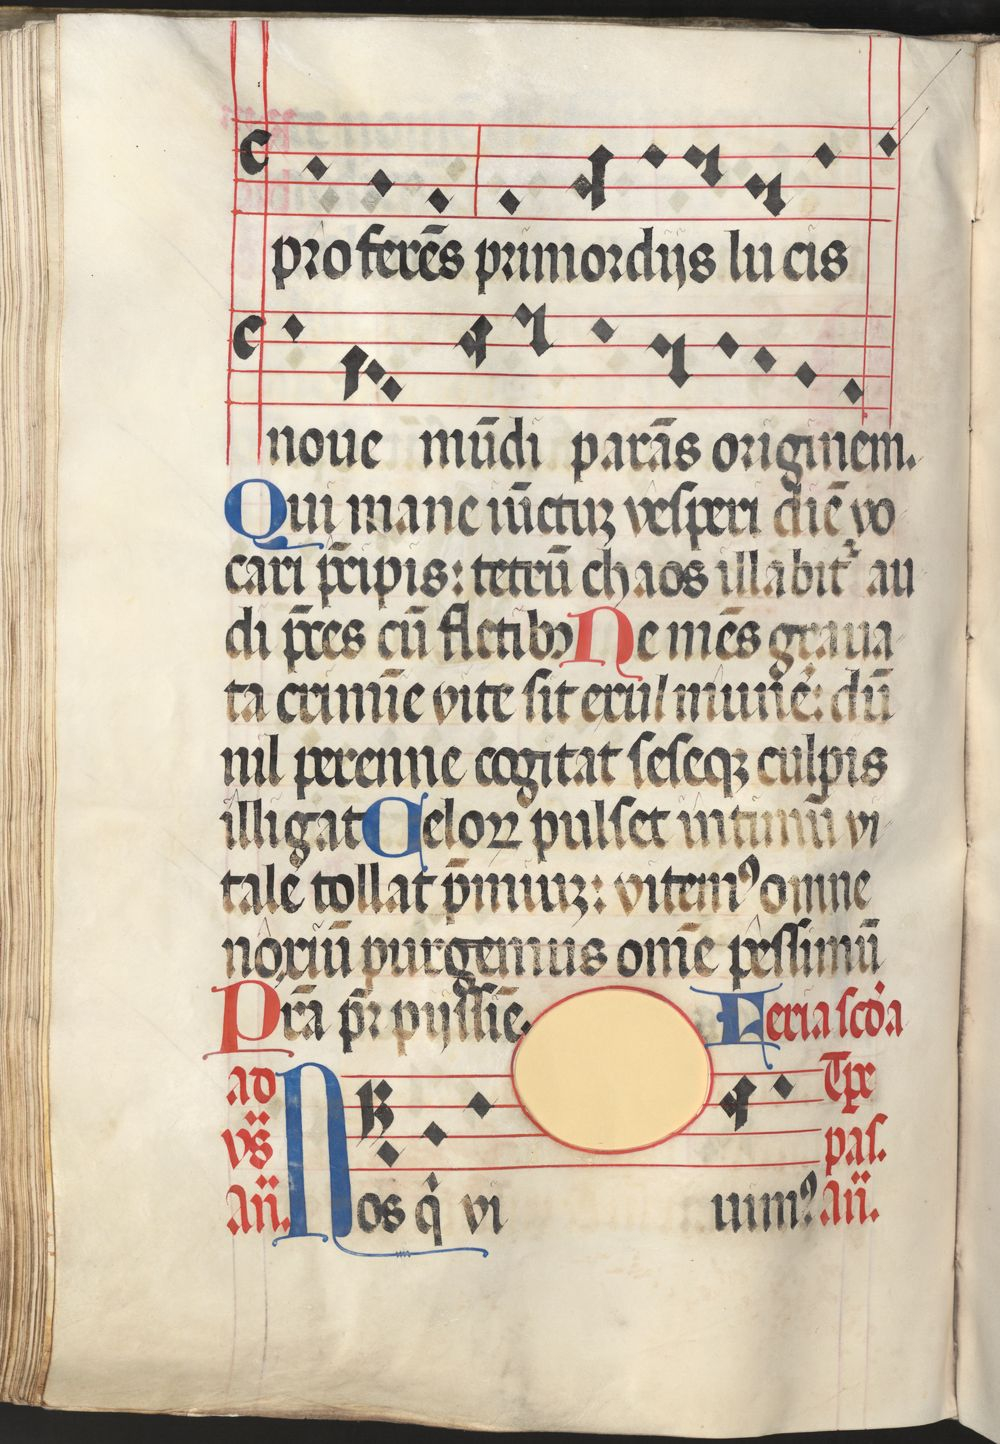 proferēs primordijs lucis
noue mūdi parās originem.
Qui mane iūctuꝫ vesperi diē vo
cari p̄cipis: tetrū chaos illabit᷑ au
di p̄ces cū fletibꝫ Ne mēs graua
ta crimīe vite sit exul munē: dū
nil perenne cogitat seseqꝫ culpis
illigat Celoꝝ pulset intimū vi
tale tollat p̄miuꝫ: vitemꝰ omne
noxiū purgemus omē pessimū
Prā pr̄ pijssīe. Feria scďa
ad Tp̄e
vs̄ pas.
Añ. Nos q̇ vi uimꝰ añ.